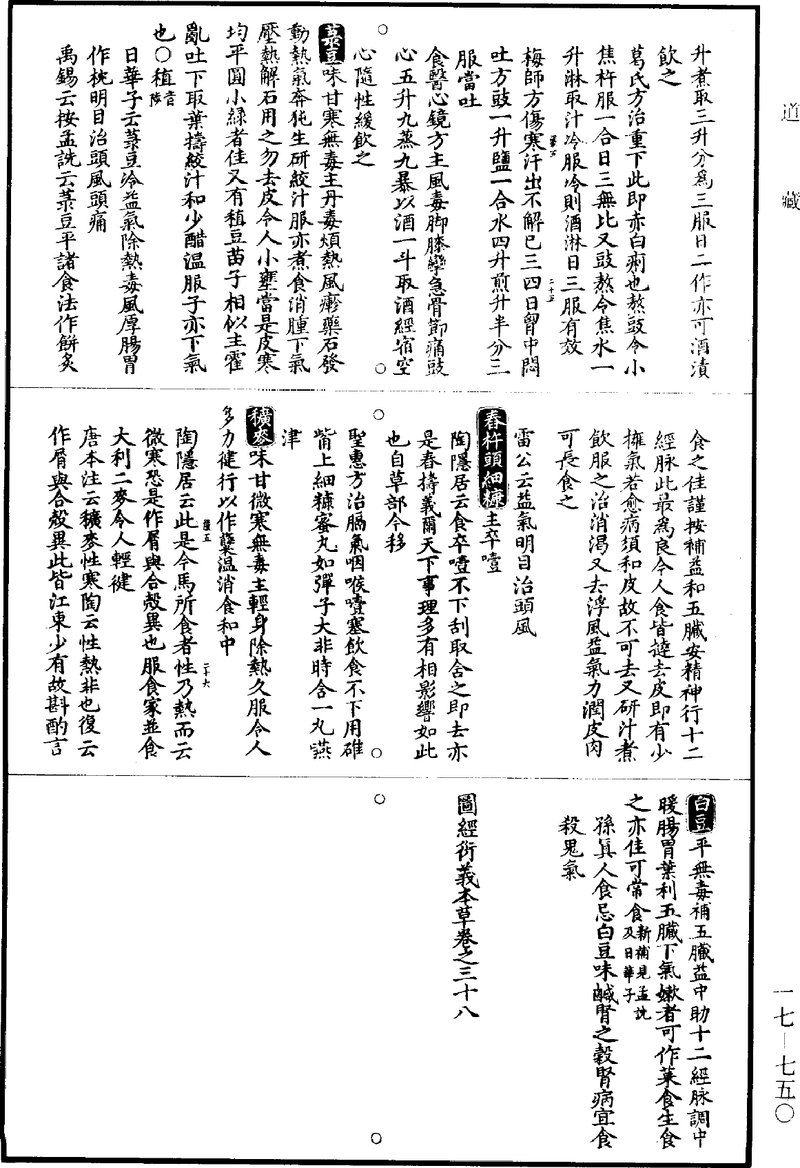 道藏
升煮取三升分為三服日二作亦可酒漬
飲之
葛氏方治重下此即赤白痢也熬豉令小
焦杵服一合日三無比又豉熬令焦水一
升淋取汁冷服冷則酒淋日三服有效
梅師方傷寒汗出不解已三四日胷中悶
吐方豉一升鹽一合水四升煎升半分三
服當吐
食醫心鏡方主風毒脚膝攣急骨節痛豉
心五升九蒸九暴以酒一斗取酒經宿空
心隨性緩飲之
菉豆味甘寒無毒主丹毒煩熱風癆藥石發
動熱氣奔㹠生研絞汁服亦煮食消腫下氣
壓熱解石用之勿去皮令人小壅當是皮寒
均平圓小綠者佳又有稙豆苗子相似主霍
亂吐下取葉擣絞汁和少醋溫服子亦下氣
也○稙音陟
日華子云菉豆冷益氣除熱毒風厚腸胃
作枕明目治頭風頭痛
禹錫云按孟詵云菉豆平諸食法作餅炙
食之佳謹按補益和五臟安精神行十二
經脉此最為良今人食皆撻去皮即有少
擁氣若愈病須和皮故不可去又研汁煮
飲服之治消渴又去浮風益氣力潤皮肉
可長食之
雷公云益氣明目治頭風
舂杵頭細糠主卒噎
陶隱居云食卒噎不下刮取含之即去亦
是舂擣義爾天下事理多有相影響如此
也自草部今移
聖惠方治膈氣咽喉噎塞飲食不下用碓
觜上細糠蜜丸如彈子大非時含一丸嚥
津
穬麥味甘微寒無毒主輕身除熱久服令人
多力健行以作糵溫消食和中
陶隱居云此是今馬所食者性乃熱而云
微寒恐是作屑與合殼異也服食家並食
大利二麥令人輕健
唐本注云穬麥性寒陶云性熱非也復云
作屑與合殼異此皆江東少有故斟酌言
白豆平無毒補五臟益中助十二經脉調中
暖腸胃葉利五臟下氣嫩者可作菜食生食
之亦佳可常食新補見孟詵及日華子
孫真人食忌白豆味鹹腎之穀腎病宜食
殺鬼氣
圖經衍義本草卷之三十八
一七—七五〇